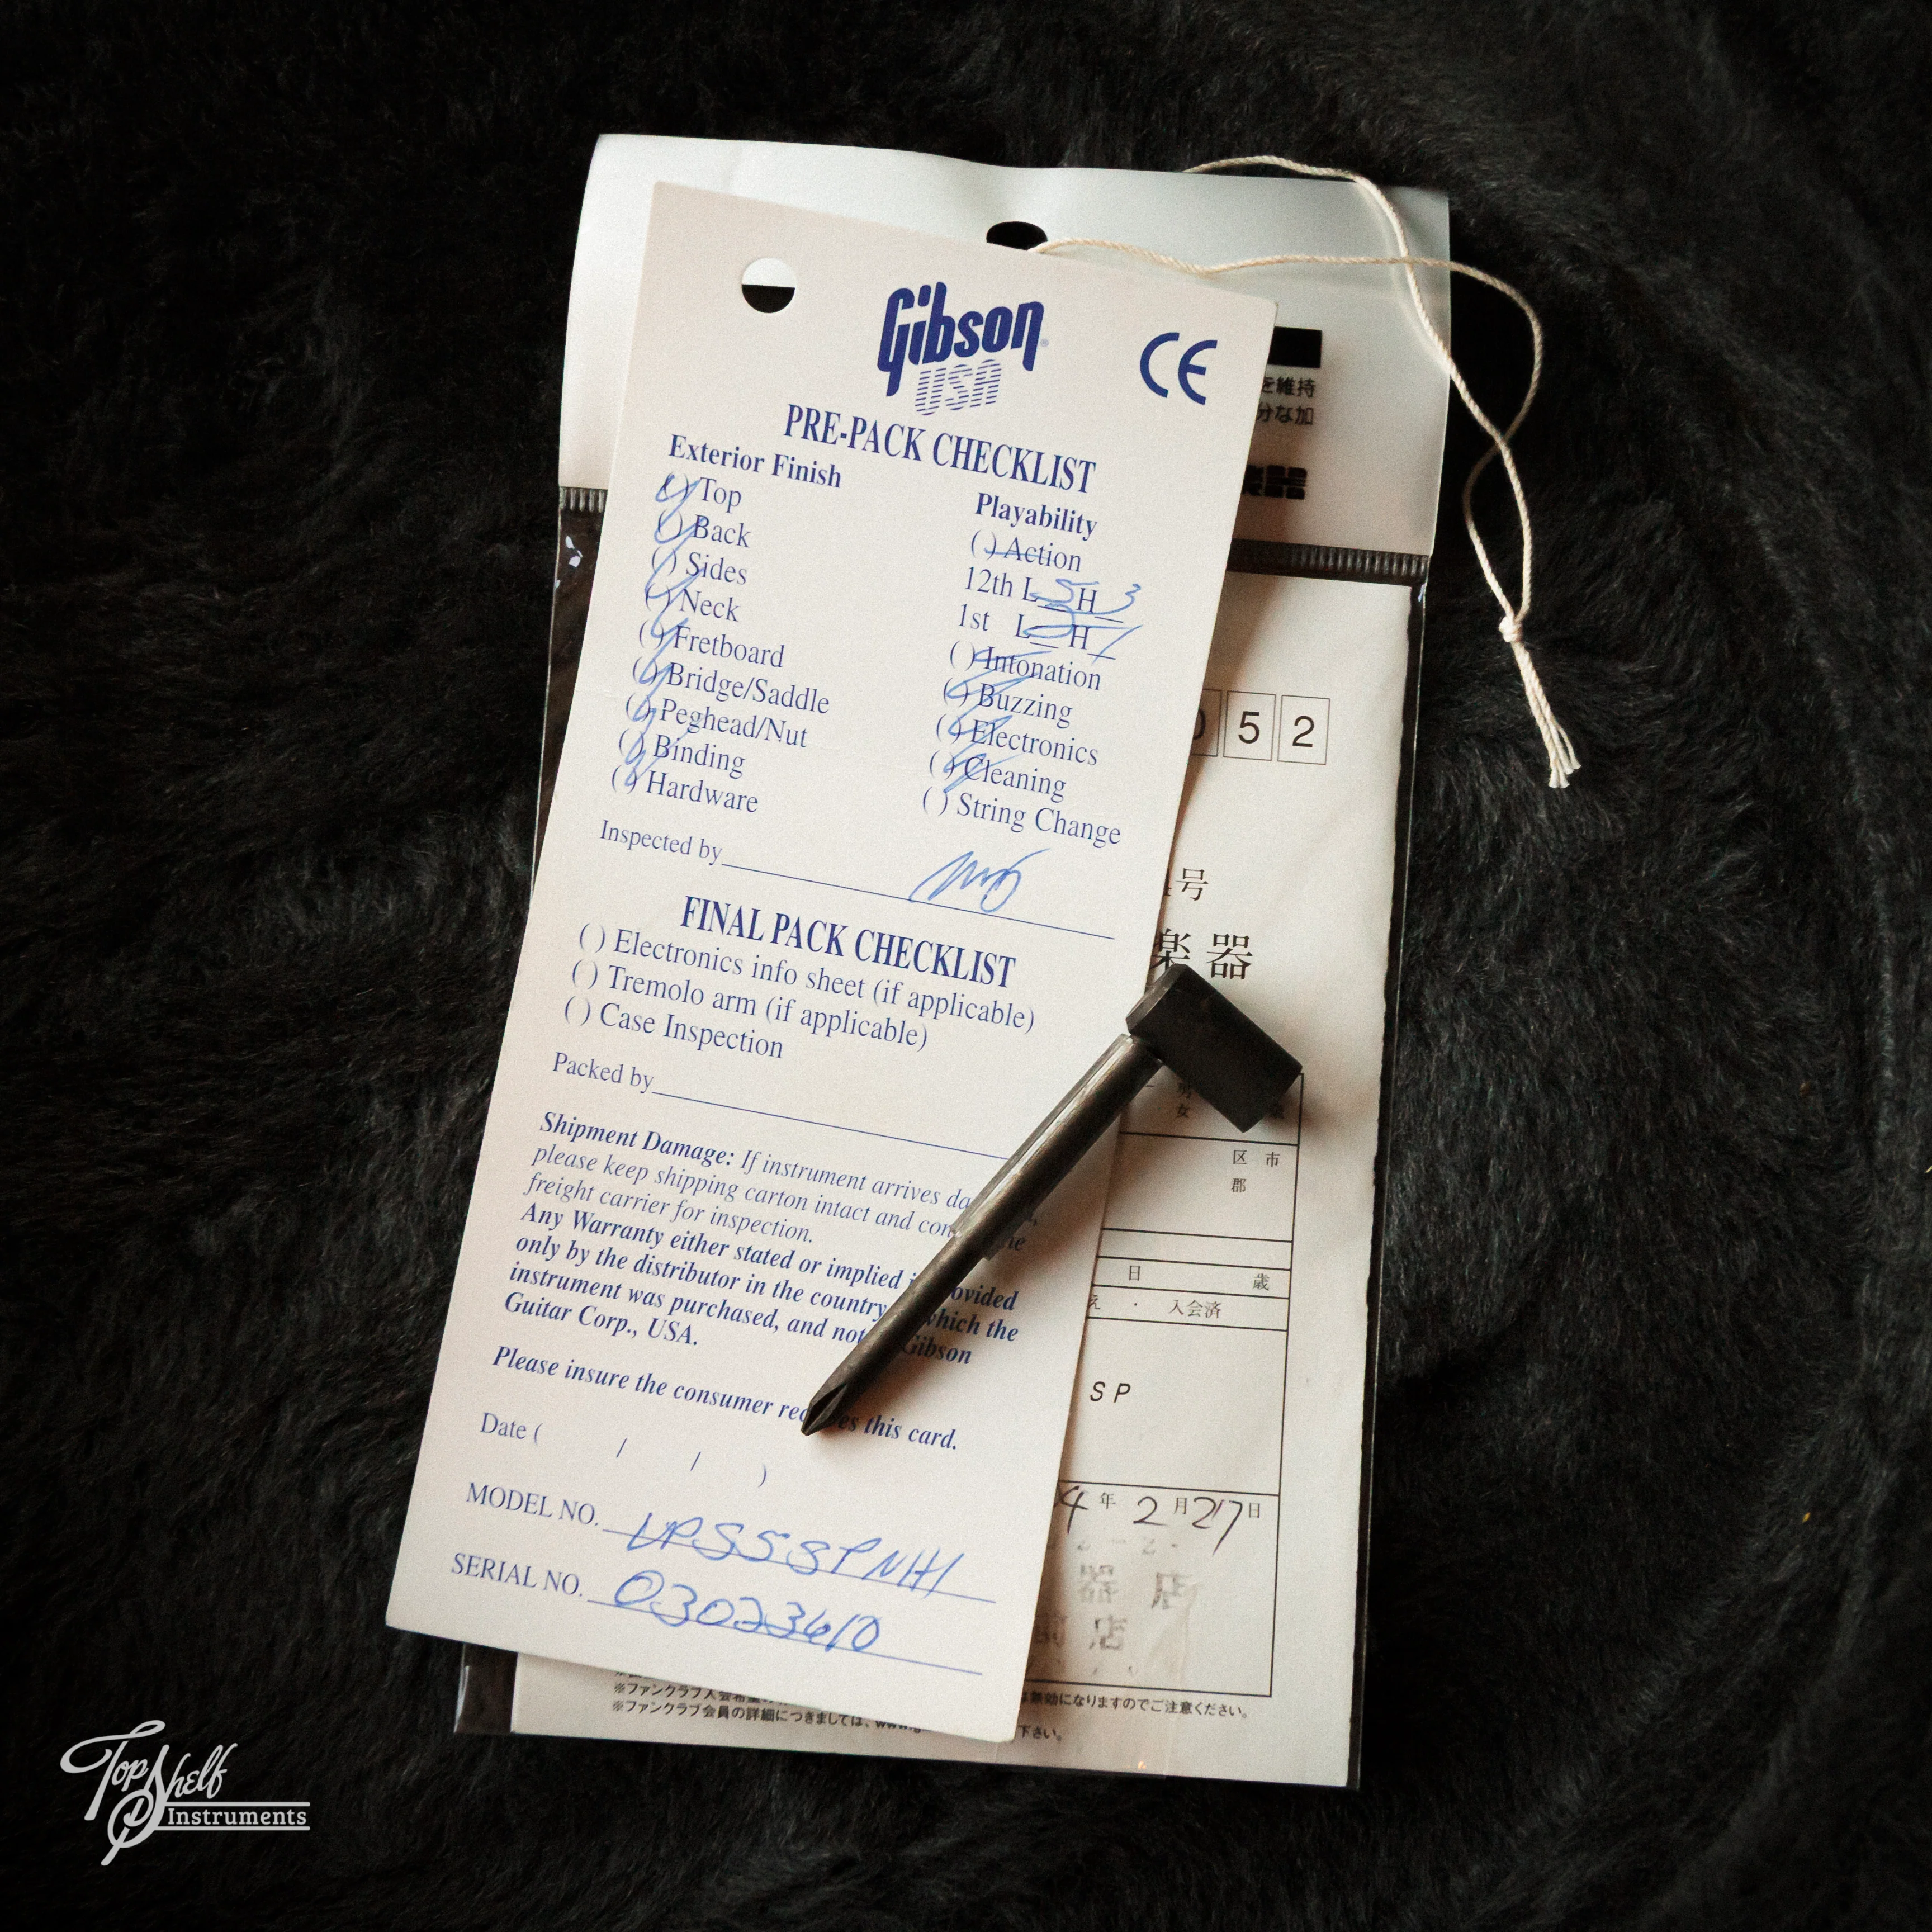 Gibson
USA
CE
PRE-PACK CHECKLIST
Exterior Finish
( ) Top
( ) Back
( ) Sides
( ) Neck
( ) Fretboard
( ) Bridge/Saddle
( ) Peghead/Nut
( ) Binding
( ) Hardware
Playability
( ) Action
12th L 5 H 3
1st L H 1
( ) Intonation
( ) Buzzing
( ) Electronics
( ) Cleaning
( ) String Change
Inspected by
FINAL PACK CHECKLIST
( ) Electronics info sheet (if applicable)
( ) Tremolo arm (if applicable)
( ) Case Inspection
Packed by
Shipment Damage: If instrument arrives
please keep shipping carton intact and
freight carrier for inspection.
Any Warranty either stated or implied
only by the distributor in the country which the
instrument was purchased, and not Gibson
Guitar Corp., USA.
Please insure the consumer this card.
Date ( / / )
MODEL NO. LPSSSPNH1
SERIAL NO. 03023610
を維持
分な加
楽器
5 2
号
楽器
男
女
区 市
郡
日 歳
え ・ 入会済
SP
4 年 2 月 27 日
は無効になりますのでご注意ください。
※ファンクラブ会員の詳細につきましては、
下さい。
Top Shelf
Instruments